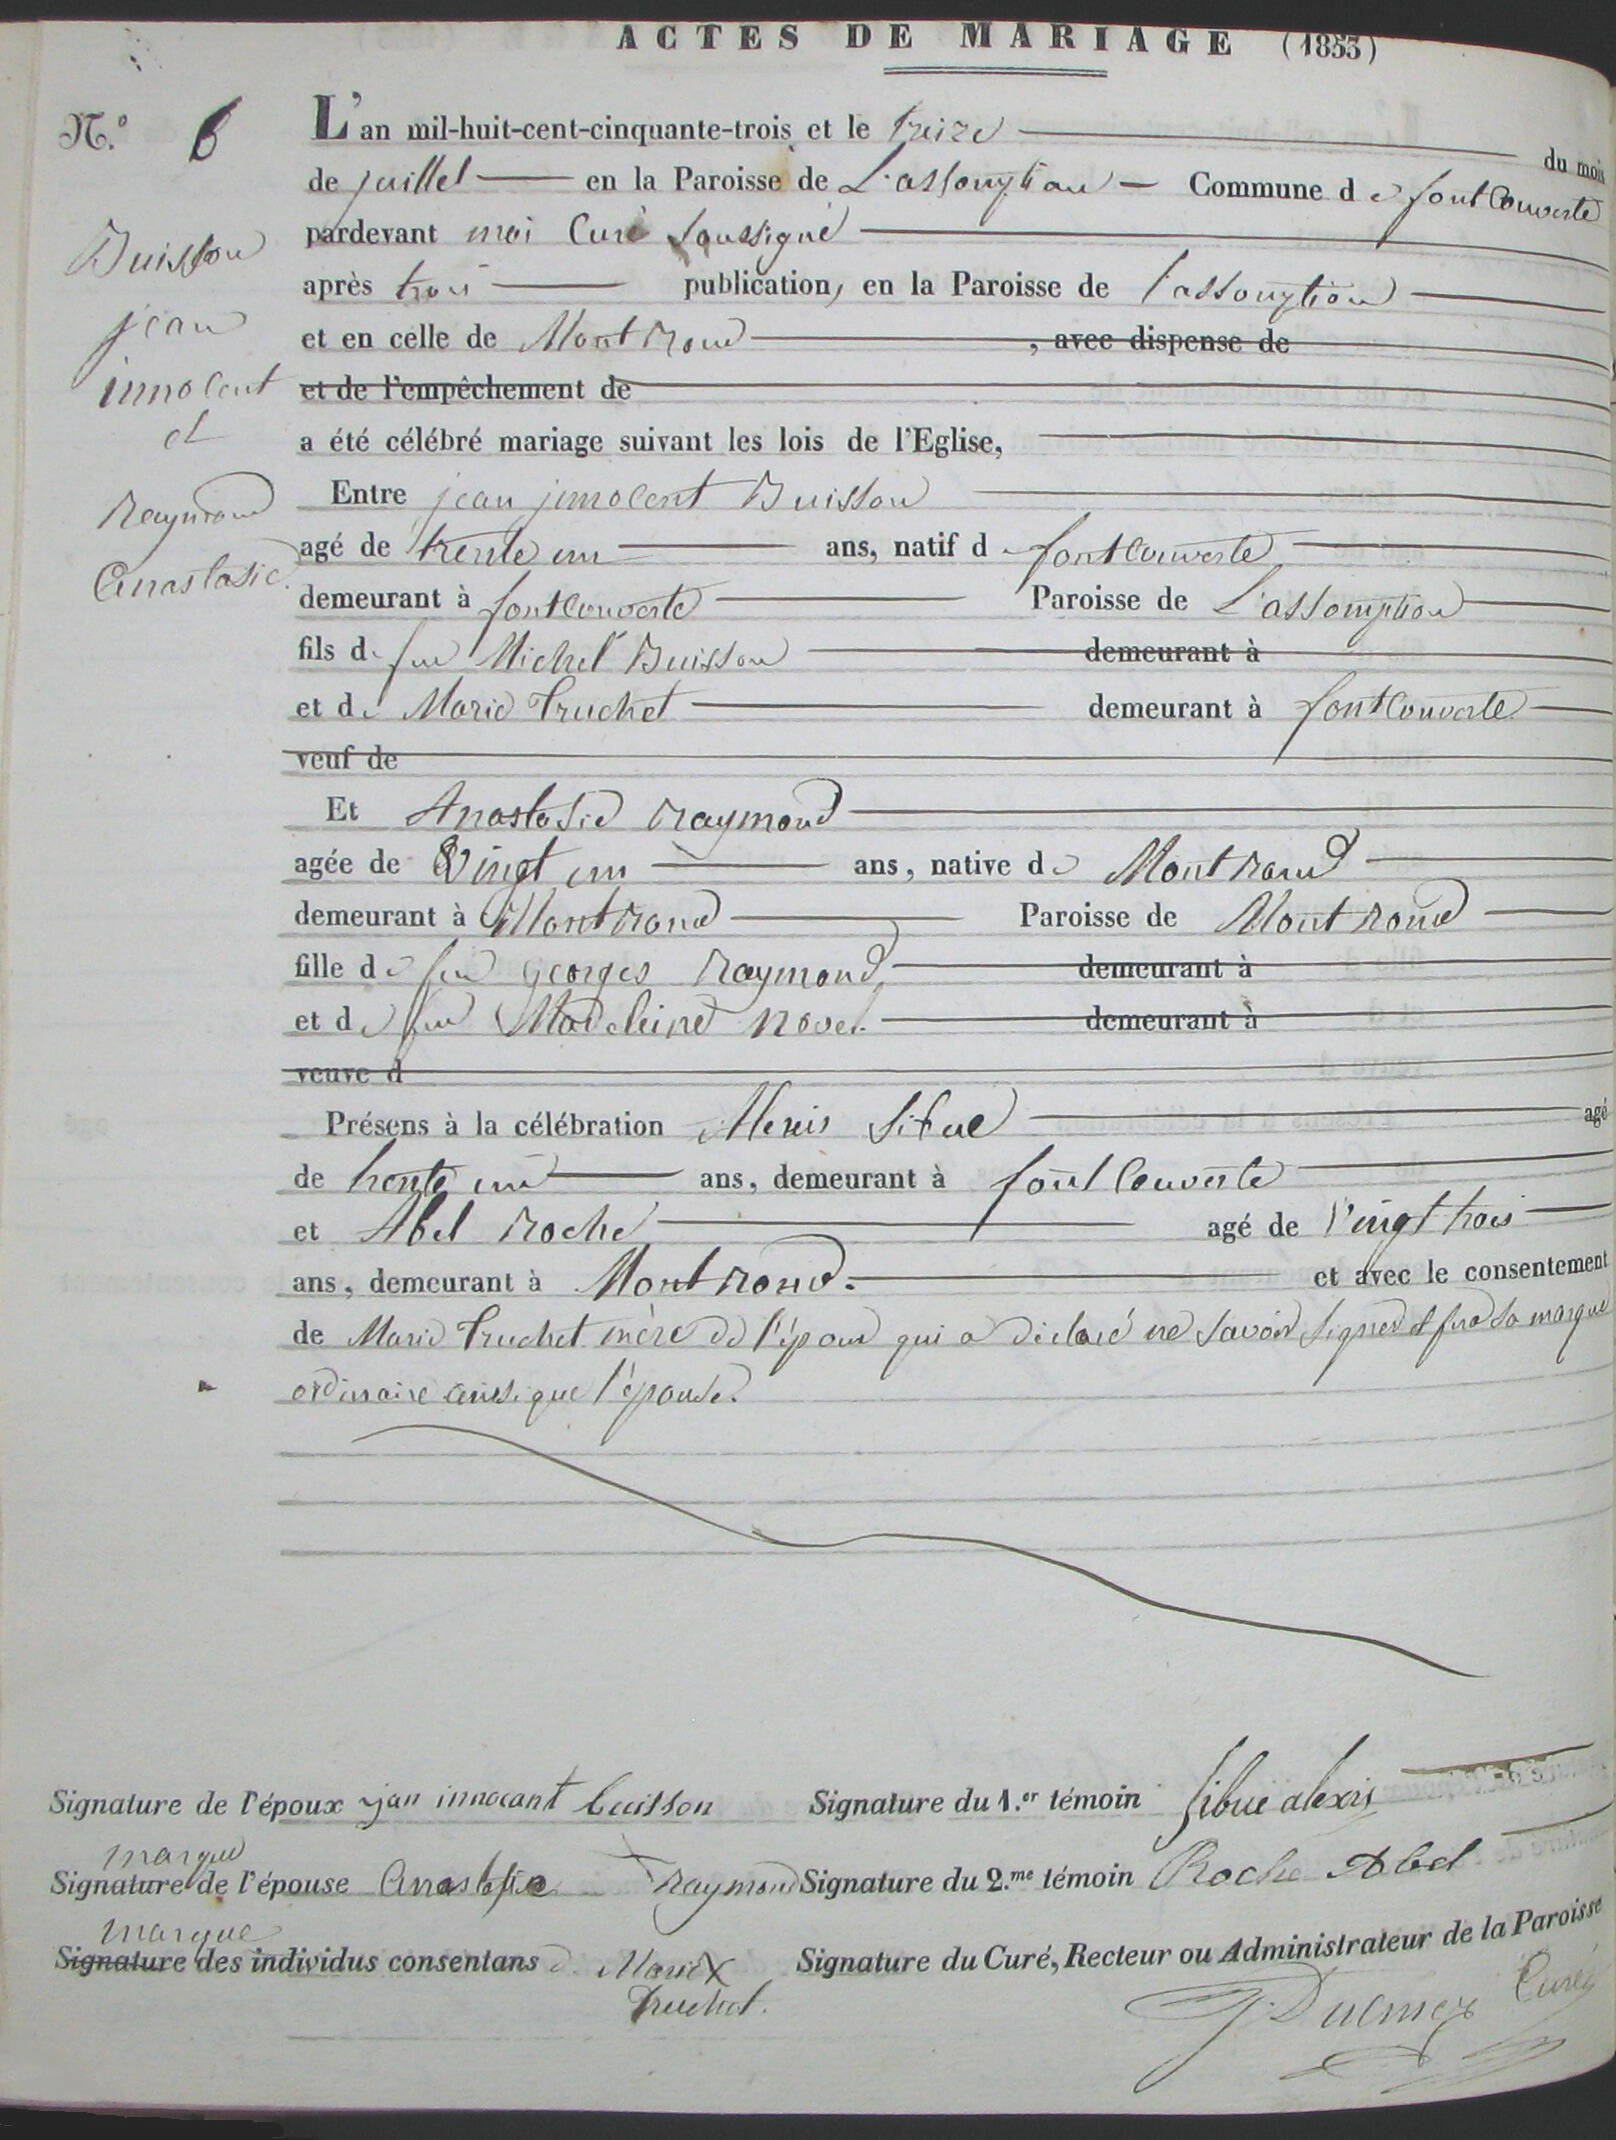 ACTES DE MARIAGE (1853)
N.º 6
L'an mil-huit-cent-cinquante-trois et le treize du mois
de juillet en la Paroisse de L'assomption Commune de fontcouverte
pardevant moi Curé soussigné
après trois publication, en la Paroisse de l'assomption
et en celle de Montrond, avec dispense de
et de l'empêchement de
a été célébré mariage suivant les lois de l'Eglise,
Buisson
jean
innocent
et
Raymond
Anastasie
Entre jean jnnocent Buisson
agé de trente un ans, natif d fontcouverte
demeurant à fontcouverte Paroisse de L'assomption
fils de feu Michel Buisson demeurant à
et de Marie Truchet demeurant à fontcouverte
veuf de
Et Anastasie Raymond
agée de Vingt un ans, native de Montrond
demeurant à Montrond Paroisse de Montrond
fille de feu georges Raymond demeurant à
et de feu Madeleine Novel demeurant à
veuve d
Présens à la célébration Alexis Sibué agé
de trente un ans, demeurant à fontcouverte
et Abel Roche agé de Vingt trois
ans, demeurant à Montrond. et avec le consentement
de Marie Truchet mère de l'époux qui a déclaré ne savoir signer et fera sa marque
ordinaire ainsi que l'épouse.
Signature de l'époux jan innocant buisson
Signature du 1.er témoin Sibue alexis
marque
Signature de l'épouse Anastasie x Raymond
Signature du 2.me témoin Roche Abel
marque
Signature des individus consentans d Marie X
Truchet.
Signature du Curé, Recteur ou Administrateur de la Paroisse
Curé